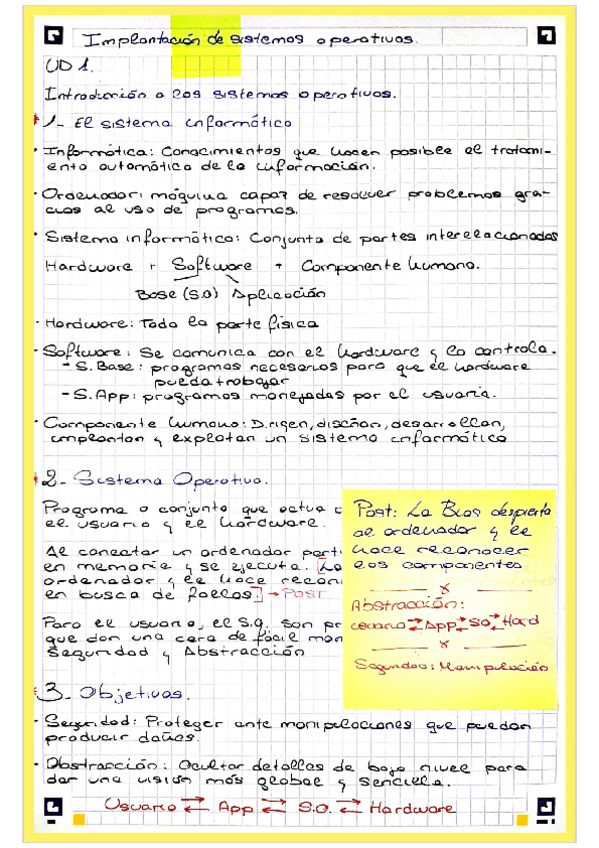 Implantación de sistemas operativos.
UD 1.
Introducción a los sistemas operativos.
* 1- El sistema informático
· Informática: Conocimientos que hacen posible el tratami-
ento automático de la información.
· Ordenador: máquina capaz de resolver problemas gra-
cias al uso de programas.
· Sistema informático: Conjunto de partes interelacionadas
Hardware + Software + Componente humano.
Base (S.O) Aplicación
· Hardware: Toda la parte física
· Software: Se comunica con el hardware y lo controla.
- S. Base: programas necesarios para que el hardware
pueda trabajar
- S. App: programas manejadas por el usuario.
· Componente humano: Dirigen, diseñan, desarrollan,
implantan y explotan un sistema informático
* 2- Sistema Operativo.
Programa o conjunto que actua
el usuario y el hardware.
Al conectar un ordenador part
en memoria y se ejecuta. [La
ordenador y le hace recon
en busca de fallos.] → POST
Para el usuario, el S.O. son pr
que dan una cara de fácil man
Seguridad y Abstracción
Post: La Bios despierta
al ordenador y le
hace reconocer
los componentes
x
Abstracción:
usuario ⇄ App ⇄ SO ⇄ Hard
x
Seguridad: Manipulación
* 3- Objetivos.
· Seguridad: Proteger ante manipulaciones que puedan
producir daños.
· Abstracción: Ocultar detalles de bajo nivel para
dar una visión más global y sencilla.
Usuario ⇄ App ⇄ S.O. ⇄ Hardware